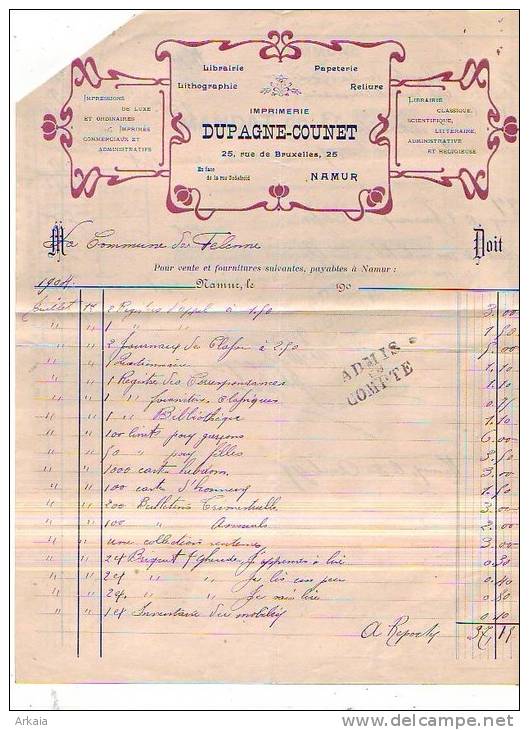 Librairie Papeterie
Lithographie Reliure
IMPRIMERIE
DUPAGNE-COUNET
25, rue de Bruxelles, 25
En face
de la rue Godefroid
NAMUR
IMPRESSIONS
DE LUXE
ET ORDINAIRES
IMPRIMÉS
COMMERCIAUX ET
ADMINISTRATIFS
LIBRAIRIE
CLASSIQUE,
SCIENTIFIQUE,
LITTÉRAIRE,
ADMINISTRATIVE
ET RELIGIEUSE
M La Commune de Felenne Doit
Pour vente et fournitures suivantes, payables à Namur :
1904 Namur, le 190
Juillet 2 Registres d'appel à 1.50 3.00
" " 1 " " 1.50
" " 2 Journaux de Classe à 2.50 5.00
" " 1 Questionnaire 1.10
" " 1 Registre des Correspondances 1.10
" " 1 " fournitures classiques
" " 1 " Bibliothèque 1.10
" " 100 pour garçons 6.00
" " 50 " pour filles 3.50
" " 1000 cartes hebdom 3.00
" " 100 cartes d'honneur 1.50
" " 200 Bulletins Trimestriels 3.00
" " 100 " Annuels
" " une collection 3.00
" " J'apprends à lire 0.30
" " " " Je lis 0.40
" " " " Je sais lire 0.50
" " 1 Inventaire du mobilier 0.40
A Reporter 37,
ADMIS
EN
COMPTE
Arkaia
www.delcampe.net